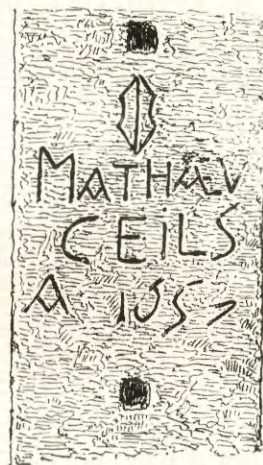 MATHÆV
CEILS
A 1557